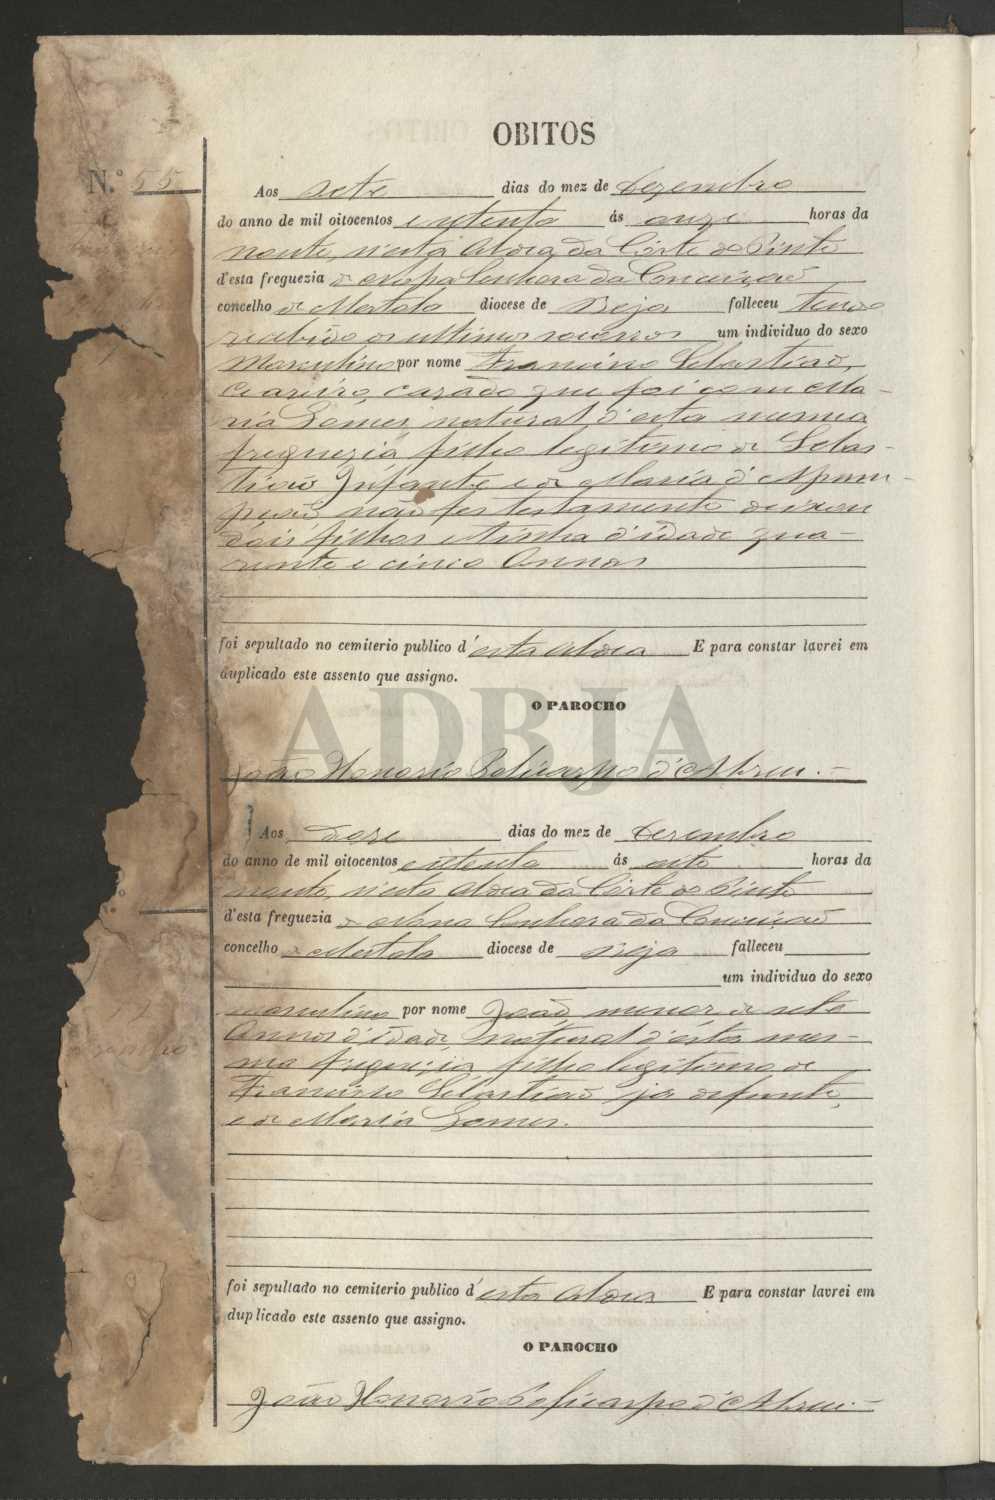 OBITOS
N.º 55
Aos sete dias do mez de Dezembro
do anno de mil oitocentos e setenta ás onze horas da
noute, n'esta Aldeia da Corte do Pinto
d'esta freguezia de Nossa Senhora da Conceição
concelho de Mertola diocese de Beja falleceu tendo
recebido os ultimos socorros um individuo do sexo
Masculino por nome Francisco Sebastião,
casado que foi com Ma-
ria Gomes, natural d'esta mesma
freguezia filho legitimo de Sebas-
tião Infante e de Maria d'Assum-
pção não fes testamento deixou
dois filhos e tinha d'idade qua-
renta e cinco Annos
foi sepultado no cemiterio publico d'esta Aldeia E para constar lavrei em
duplicado este assento que assigno.
O PAROCHO
ADBJA
João Honorio Policarpo d'Abreu.
Aos doze dias do mez de Dezembro
do anno de mil oitocentos e setenta ás oito horas da
noute, n'esta Aldeia da Corte do Pinto
d'esta freguezia de Nossa Senhora da Conceição
concelho de Mertola diocese de Beja falleceu
um individuo do sexo
masculino por nome João, menor de sete
Annos d'idade, natural d'esta mes-
ma freguezia, filho legitimo de
Francisco Sebastião ja defunto,
e de Maria Gomes.
foi sepultado no cemiterio publico d'esta Aldeia E para constar lavrei em
duplicado este assento que assigno.
O PAROCHO
João Honorio Policarpo d'Abreu.